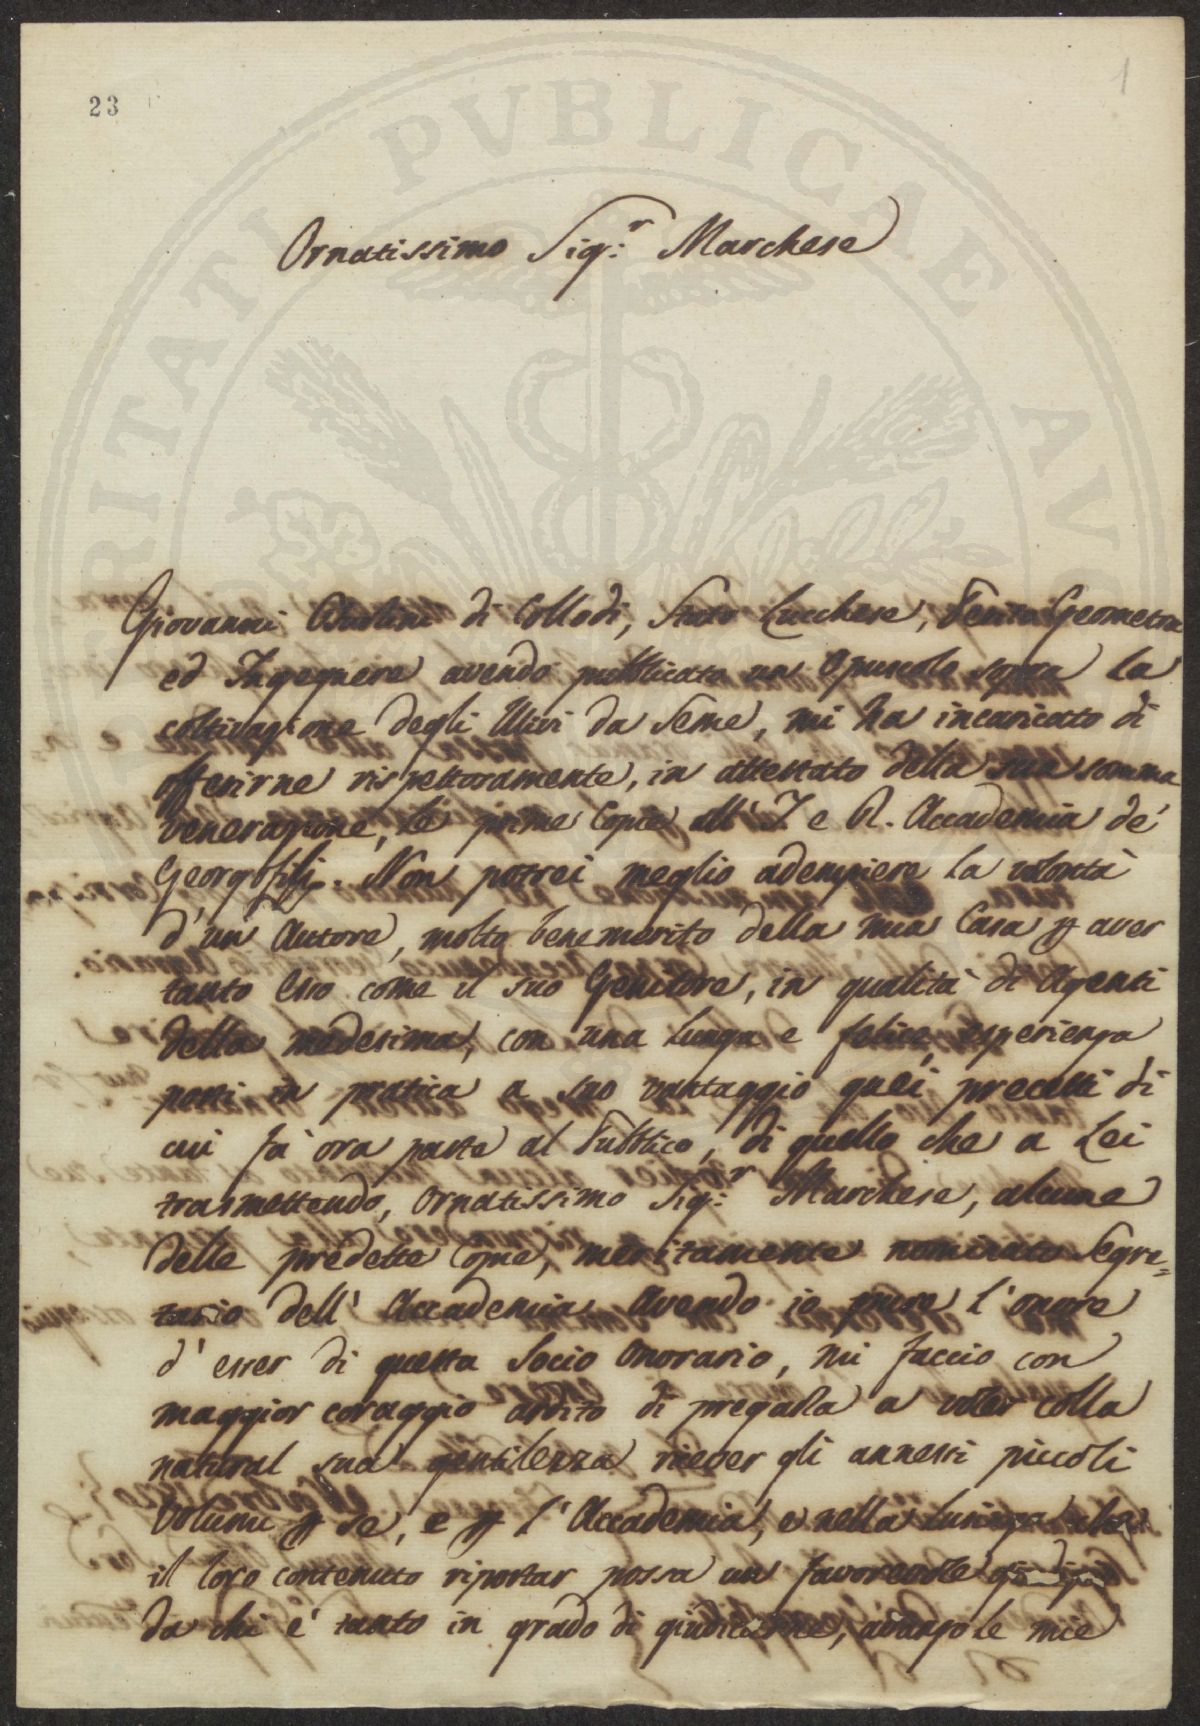 23
1
Ornatissimo Sig.r Marchese
Giovanni di Collodi, Stato Lucchese, Perito Geometra
ed Ingegnere avendo pubblicato un Opuscolo sopra la
coltivazione degli Ulivi da Seme, mi ha incaricato di
offerirne rispettosamente, in attestato della sua somma
venerazione, le prime Copie all' I e R. Accademia de'
Georgofili. Non potrei meglio adempiere la volontà
d'un Autore, molto benemerito della mia Casa p aver
tanto Esso come il suo Genitore, in qualità di Agenti
della medesima, con una lunga e felice esperienza
posti in pratica a suo vantaggio quei precetti di
cui fà ora parte al Pubblico, di quello che a Lei
trasmettendo, Ornatissimo Sig.r Marchese, alcune
delle predette Copie, meritamente nominato Segre=
tario dell' Accademia. Avendo io pure l'onore
d'esser di questa Socio Onorario, mi faccio con
maggior coraggio ardito di pregarla a voler colla
natural sua gentilezza ricever gli annessi piccoli
Volumi p se, e p l'Accademia, e nella lusinga che
il loro contenuto riportar possa un favorevole giudizio
da chi è tanto in grado di giudicarne, avanzo le mie
PVBLICAE